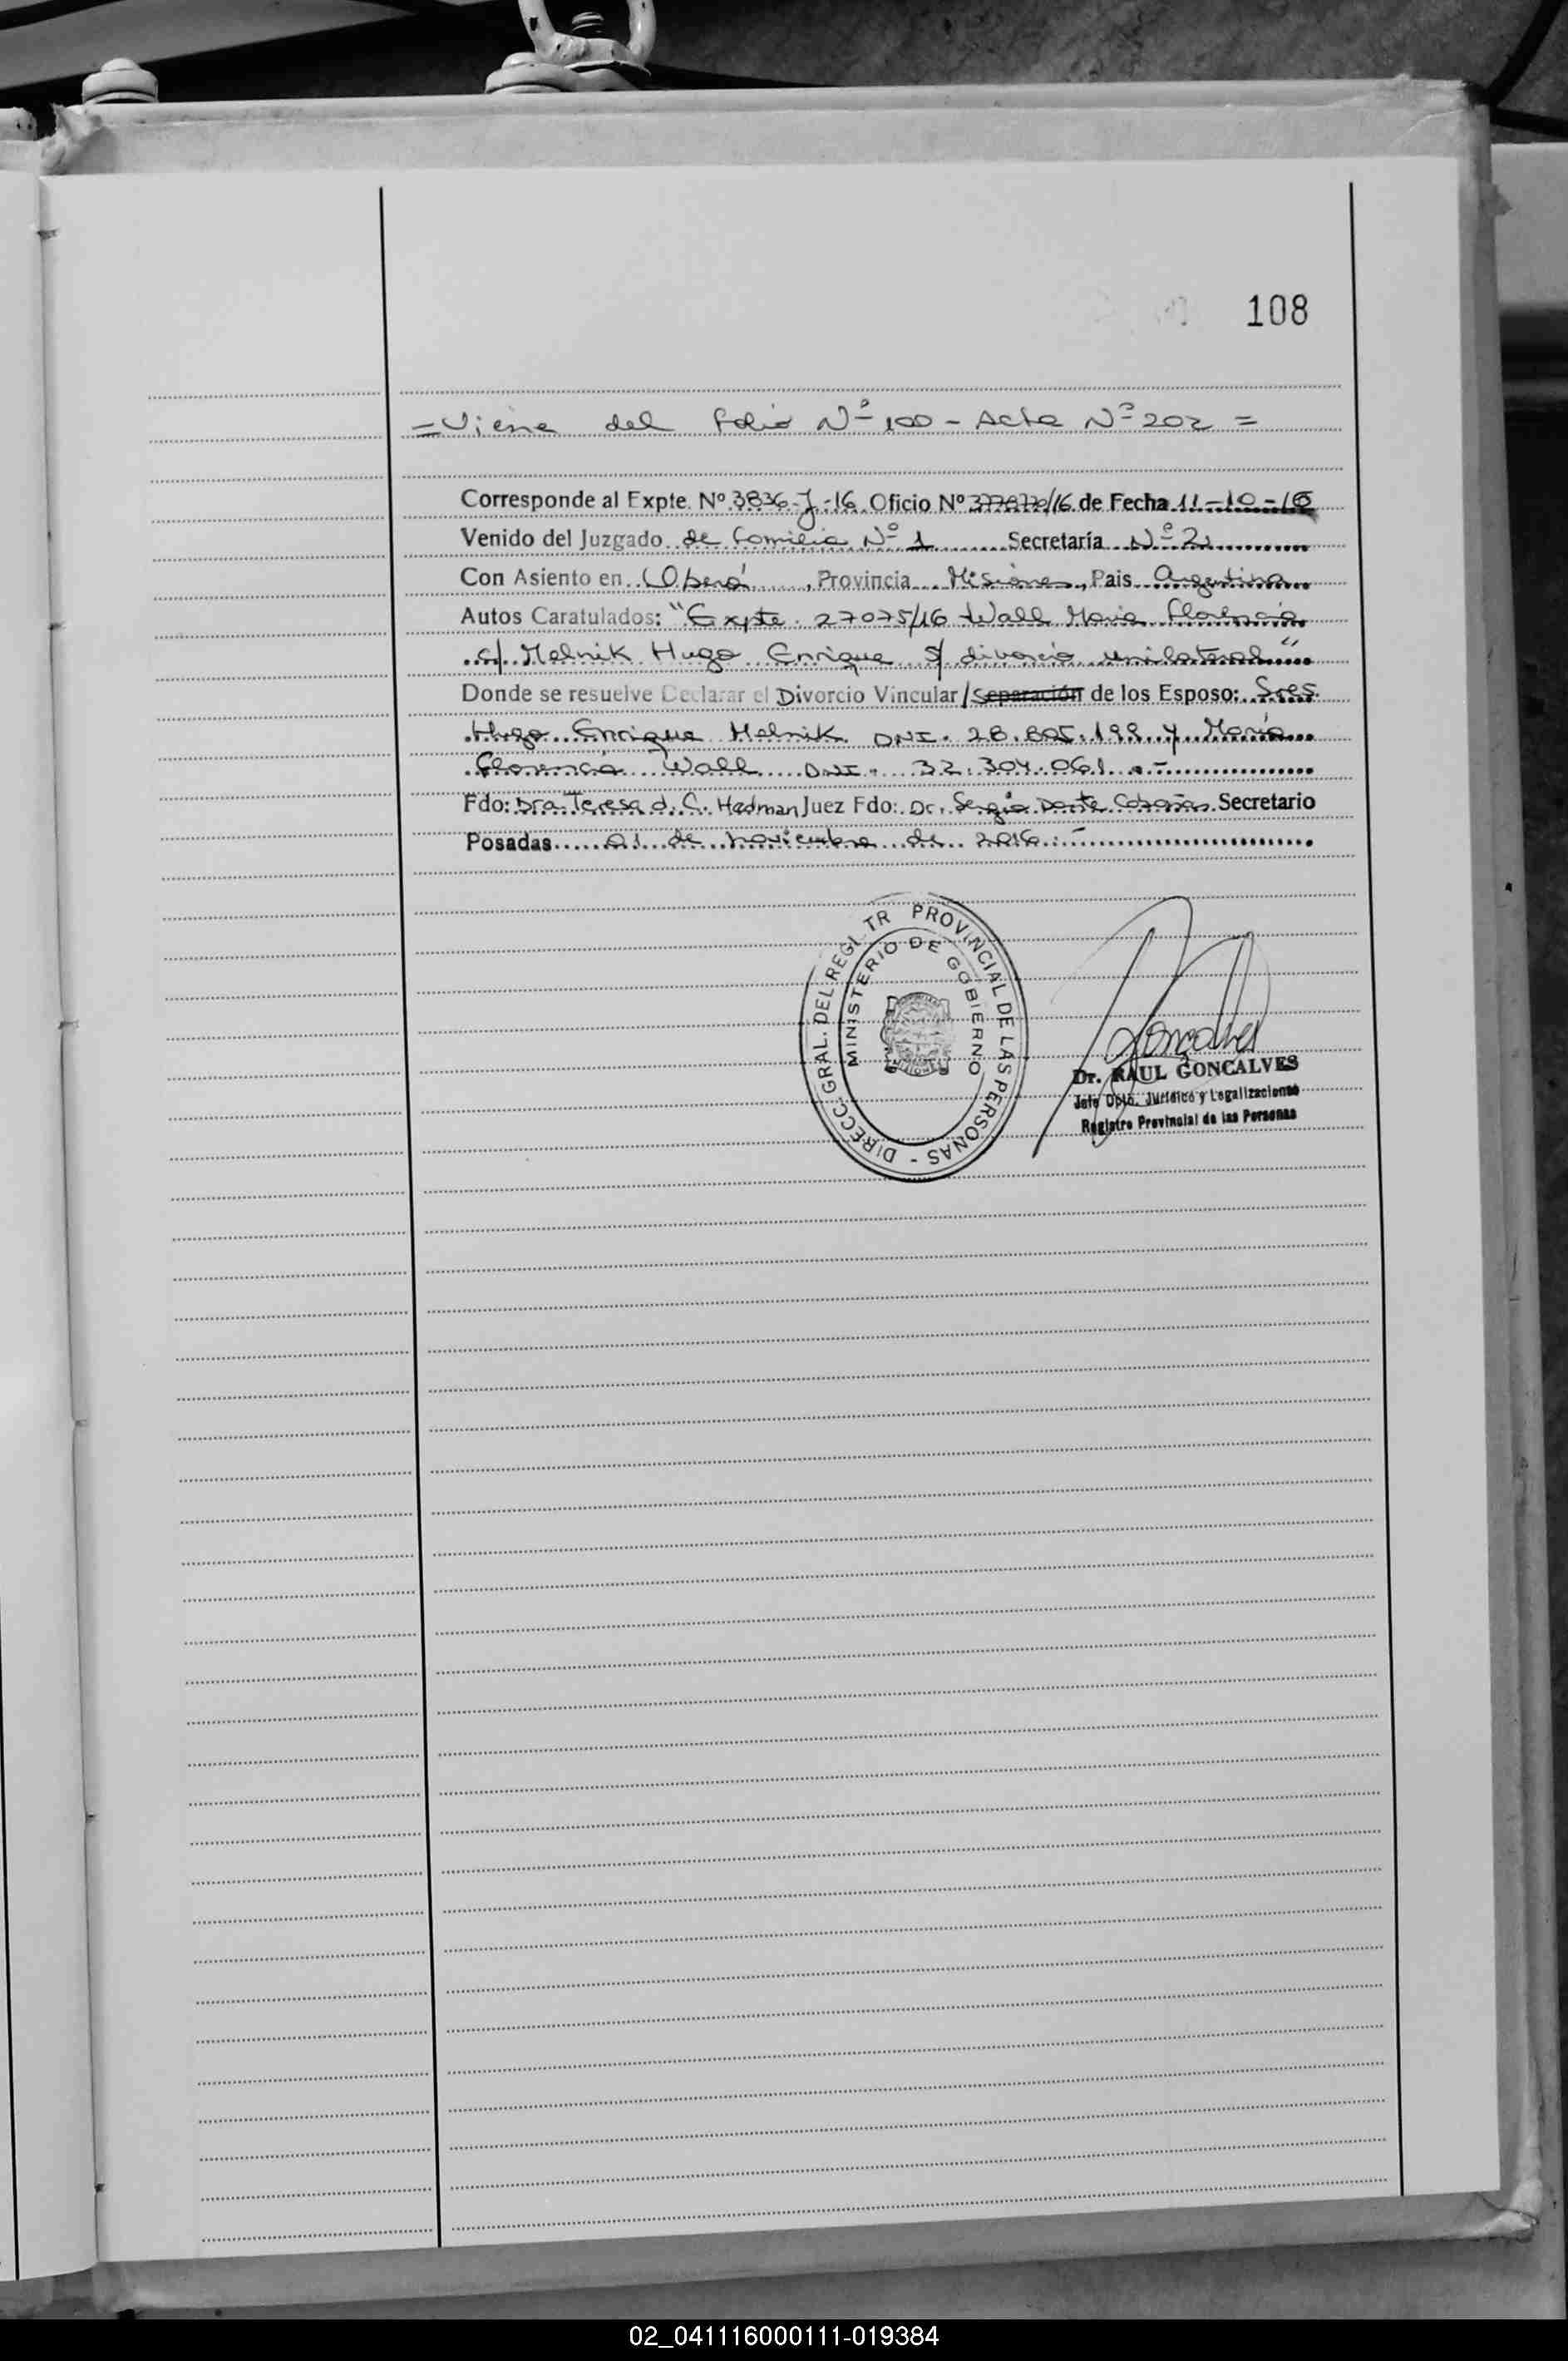 108
=Viene del folio Nº 100 - Acta Nº 202 =
Corresponde al Expte. Nº 3836-J-16 Oficio Nº /16 de Fecha 11-10-16
Venido del Juzgado de Familia Nº 1 Secretaría Nº 2
Con Asiento en Oberá, Provincia Misiones, Pais Argentina
Autos Caratulados: "Expte. 27075/16 Wall Maria Florencia
c/ Melnik Hugo Enrique s/ divorcio unilateral"
Donde se resuelve Declarar el Divorcio Vincular/Separación de los Esposo: Sres.
Hugo Enrique Melnik DNI. 28.805.199 y María
Florencia Wall DNI. 32.304.061.-
Fdo: Dra. Teresa d. C. Hedman Juez Fdo: Dr. Sergio Dante Secretario
Posadas 01 de noviembre de 2016.-
DIRECC. GRAL. DEL REGI TR PROVINCIAL DE LAS PERSONAS -
MINISTERIO DE GOBIERNO
Dr. RAUL GONCALVES
Jefe Dpto. Jurídico y Legalizaciones
Registro Provincial de las Personas
02_041116000111-019384